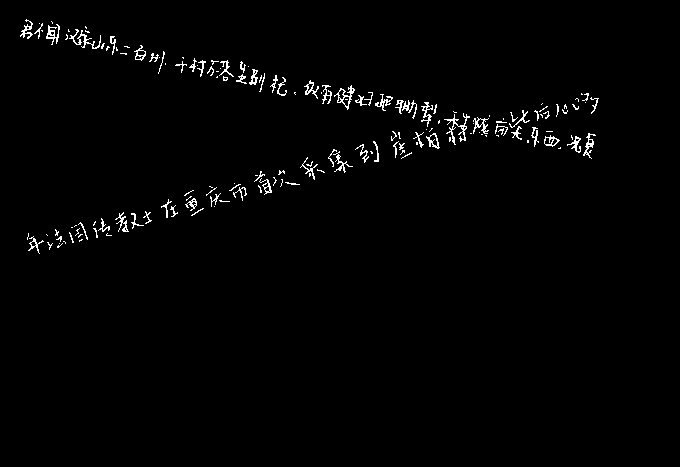 君不闻汉家山东二百州.千村万落生荆杞.纵有健妇把锄犁.禾生陇亩无东西.况复
年法国传教士在重庆市首次采集到崖柏标 此后100多